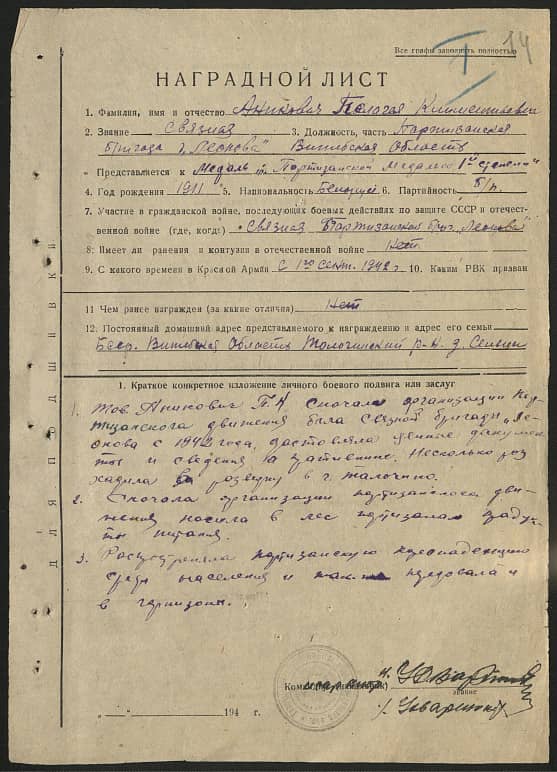 14
Все графы заполнять полностью
I
НАГРАДНОЙ ЛИСТ
1. Фамилия, имя и отчество Аникович Пелогая Климентьевна
2. Звание связная 3. Должность, часть Партизанская
бригада г. „Леонова“ Витебская Область
Представляется к Медаль Партизанской Медалью 1ой степени
4. Год рождения 1911 5. Национальность Белорус 6. Партийность б/п.
7. Участие в гражданской войне, последующих боевых действиях по защите СССР и отечест-
венной войне (где, когда) Связная Партизанская бриг. Леонова
8. Имеет ли ранения и контузии в отечественной войне Нет
9. С какого времени в Красной Армии С 1го сент. 1942 г 10. Каким РВК призван
11 Чем ранее награжден (за какие отличия) Нет
12. Постоянный домашний адрес представляемого к награждению и адрес его семьи
Бсср. Витебская Область Толочинский р-н д.
1. Краткое конкретное изложение личного боевого подвига или заслуг
1. Тов. Аникович П. К Сначала организации пар-
тизанского движения была связной бригады „Ле-
онова с 1942 года, доставляла ценные докумен-
ты и сведения о противнике. Несколько раз
хадила в разведку в г. Талочино.
2. Сначала организации партизанского дви-
жения носила в лес партизанам продук-
ты питания.
3. Распространяла партизанскую
среди населения и также
в гарнизоны.
Командир
звание
„ “ 194 г.
ДЛЯ ПОДШИВКИ